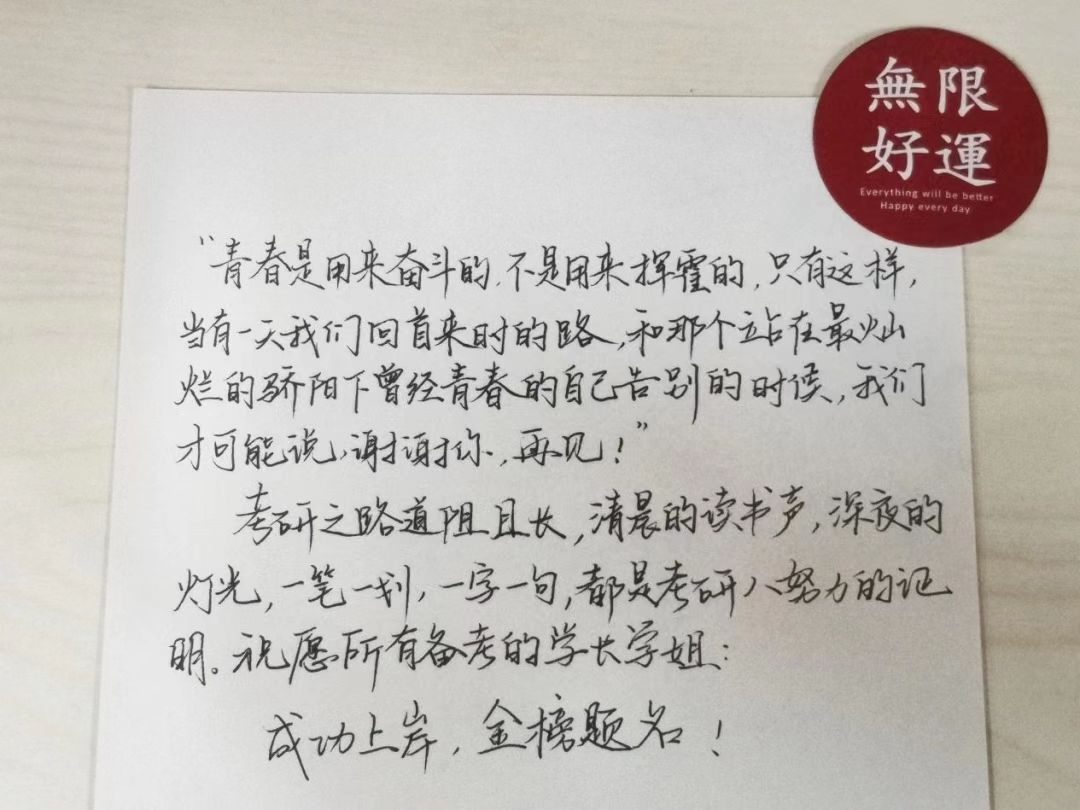 無限
好運
Everything will be better
Happy every day
“青春是用来奋斗的,不是用来挥霍的,只有这样,
当有一天我们回首来时的路,和那个站在最灿
烂的骄阳下曾经青春的自己告别的时候,我们
才可能说,谢谢你,再见!”
考研之路道阻且长,清晨的读书声,深夜的
灯光,一笔一划,一字一句,都是考研人努力的证
明。祝愿所有备考的学长学姐:
成功上岸,金榜题名!